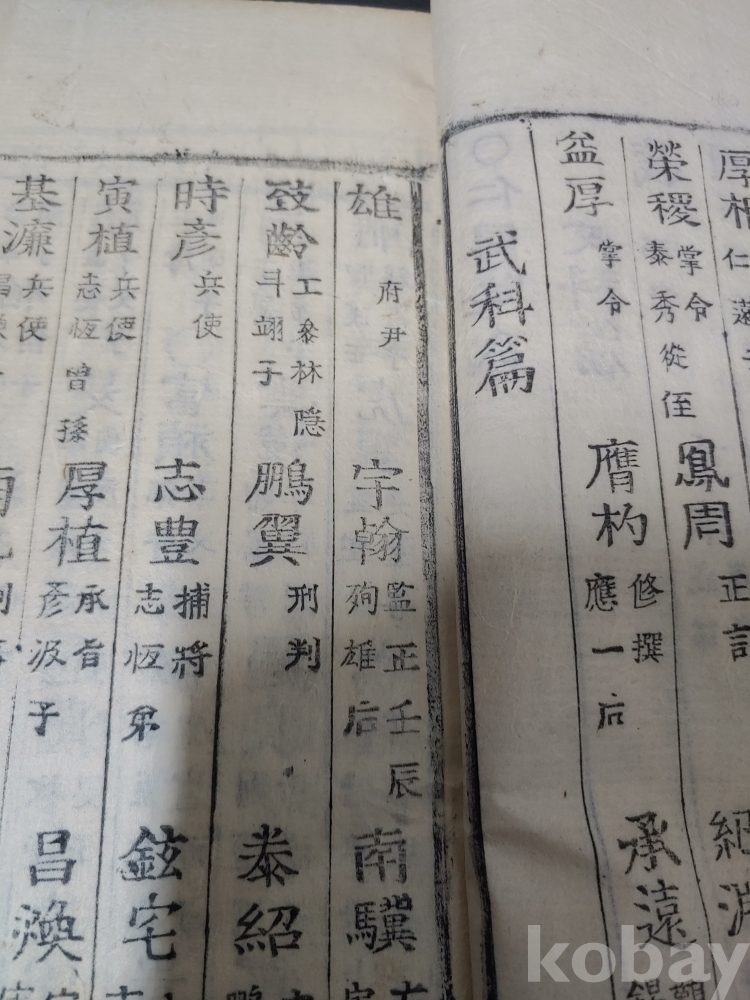 仁
榮稷 掌令
泰秀從侄
鳳周 正言
益厚 掌令
膺杓 修撰
應一后
承遠
武科篇
雄 府尹
宇翰 監正壬辰
殉雄后
南驥
致齡 工參林隱
斗翊子
鵬翼 刑判
泰紹
時彦 兵使
志豊 捕將
志恆弟
鉉宅
寅植 兵使
志恆曾孫
厚植 承旨
彦汲子
昌煥
基濂 兵使
kobay